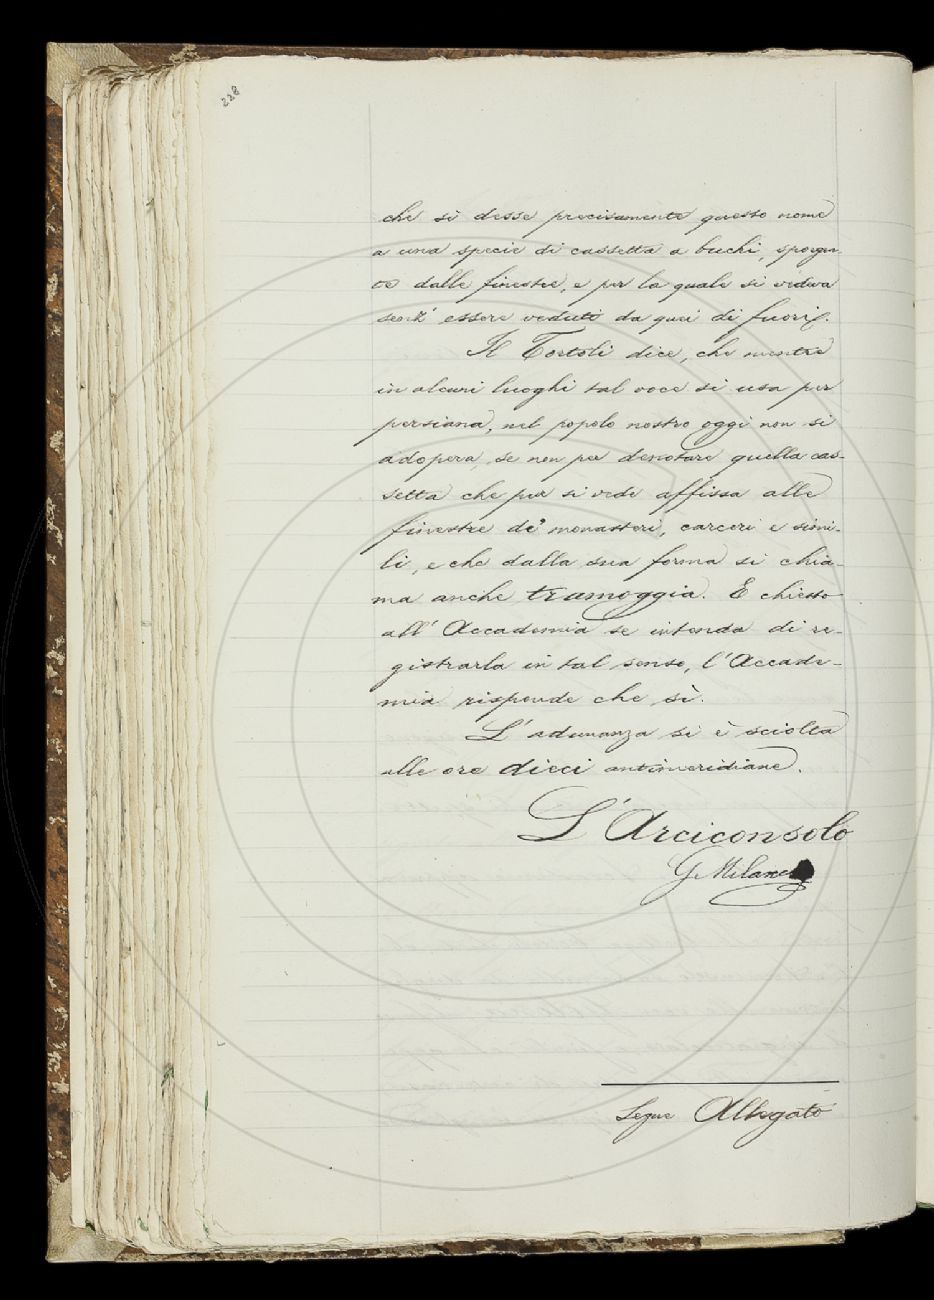 228
che si desse precisamente questo nome
a una specie di cassetta a buchi, sporgen-
te dalle finestre, e per la quale si vedeva
senz' essere veduti da quei di fuori.
Il Tortoli dice, che mentre
in alcuni luoghi tal voce si usa per
persiana, nel popolo nostro oggi non si
adopera, se non per denotare quella cas-
setta che pur si vede affissa alle
finestre de' monasteri, carceri e simi-
li, e che dalla sua forma si chia-
ma anche tramoggia. E chiesto
all' Accademia se intenda di re-
gistrarla in tal senso, l'Accade-
mia risponde che sì.
L' adunanza si è sciolta
alle ore dieci antimeridiane.
L' Arciconsolo
G Milanesi
Segue Allegato